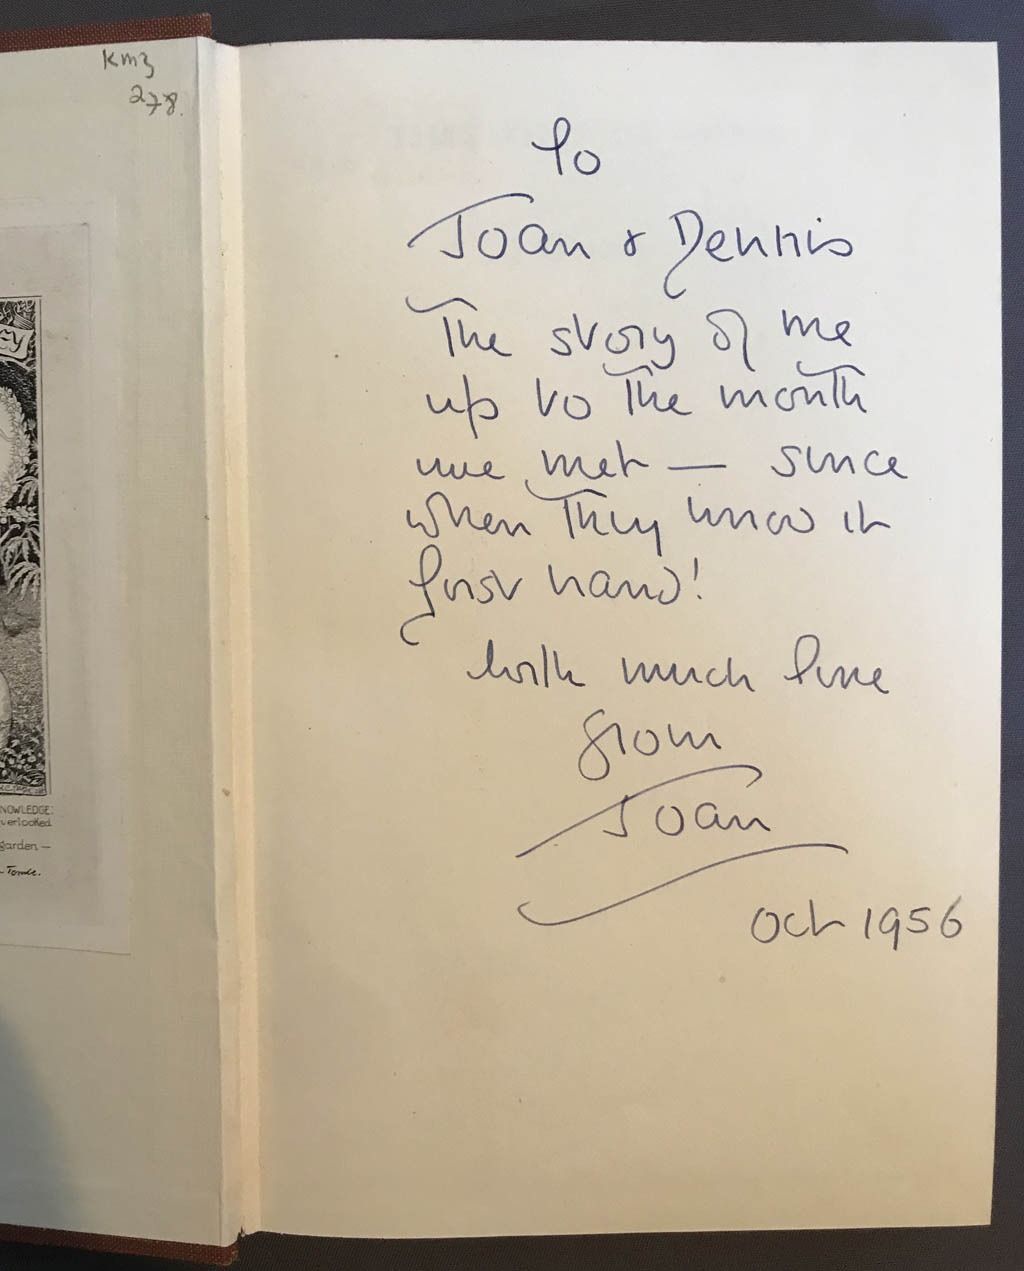 Km3
278.
EY
NOWLEDGE:
verlooked
garden —
To
Joan & Dennis
The story of me
up to the month
we met — since
when they know it
first hand!
With much love
from
Joan
Oct 1956